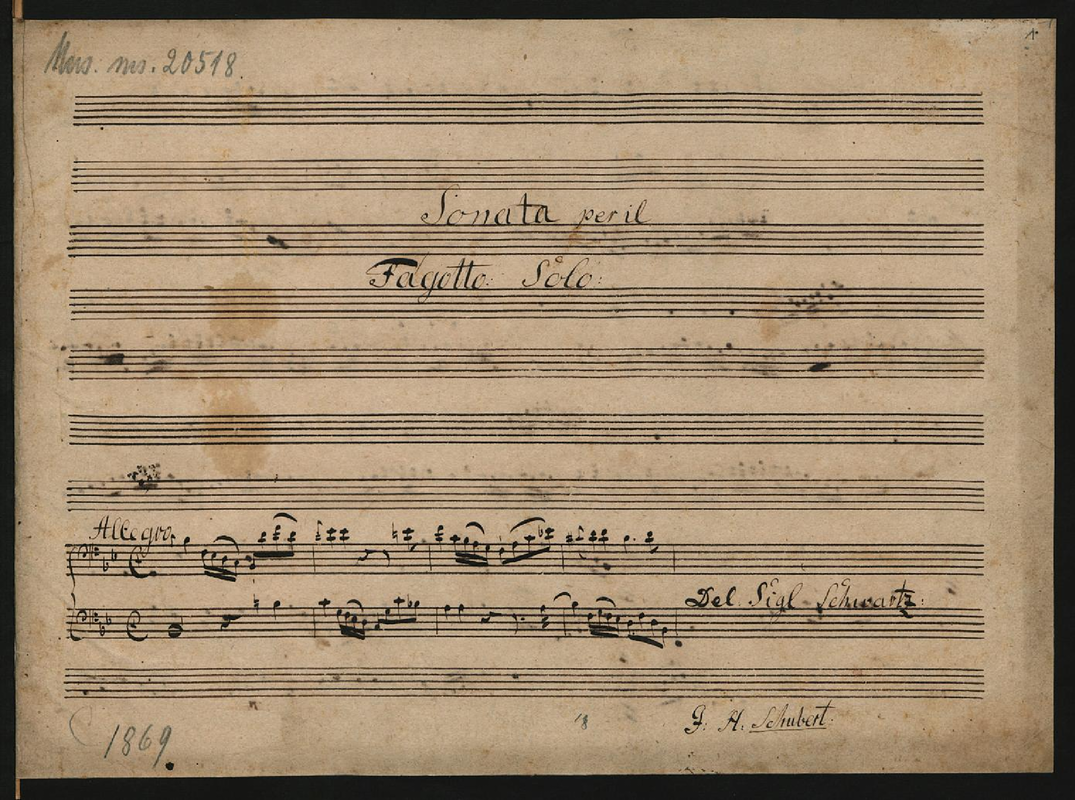 Mus. ms. 20518.
1.
Sonata per il
Fagotto: Solo:
Allegro,
Del Sigl Schwartz:
18
J. H. Schubert:
1869